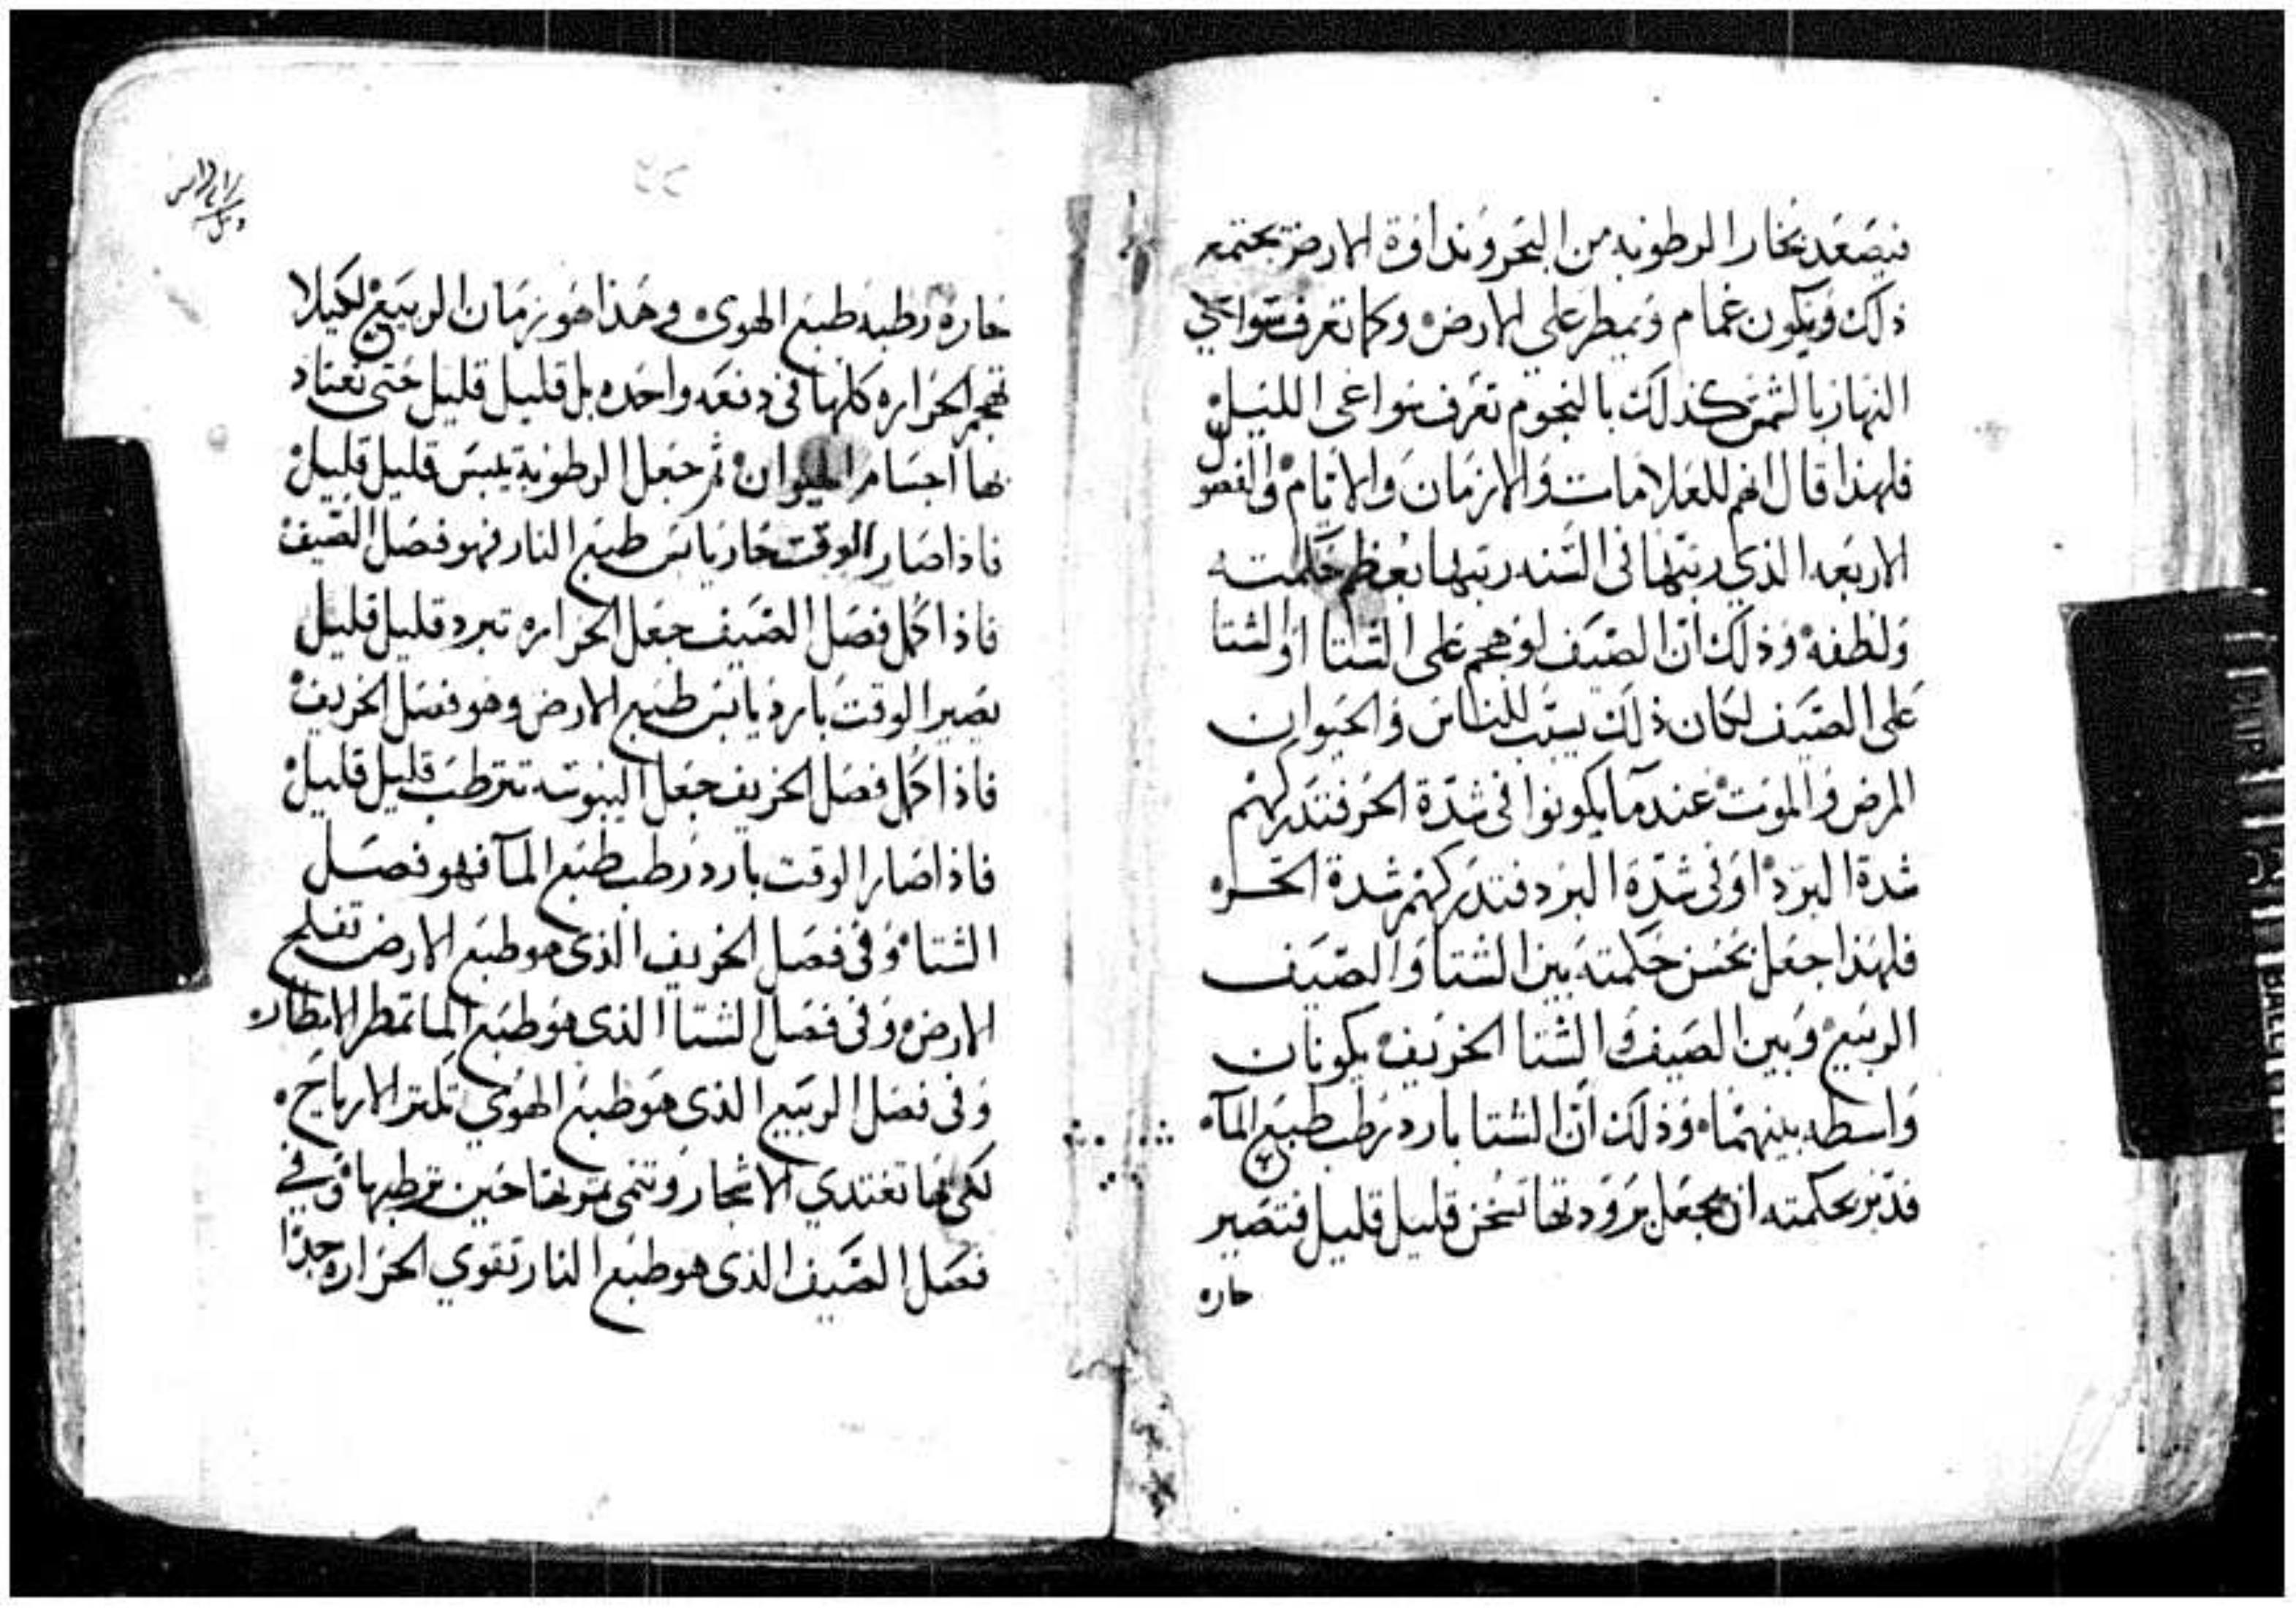 فيصعد بخار الرطوبه من البحر ونداوة الارض يجتمع
ذلك ويكون غمام ويمطر على الارض وكما تعرف سواعي
النهار بالشمس كذلك بالنجوم تعرف سواعي الليل
فلهذا قال انهم للعلامات والازمان والايام والفصول
الاربعه الذي رتبها في السنه رتبها بعظم حكمته
ولطفه وذلك ان الصيف لو هجم على الشتا او الشتا
على الصيف لكان ذلك يسبب للناس والحيوان
المرض والموت عندما يكونوا في شدة الحر فتدركهم
شدة البرد او في شدة البرد فتدركهم شدة الحر
فلهذا جعل بحسن حكمته بين الشتا والصيف
الربيع وبين الصيف والشتا الخريف يكونان
واسطه بينهما وذلك ان الشتا بارد رطب طبع المآ
فدبر بحكمته ان يجعل برودتها تسخن قليل قليل فتصير
حاره
حاره رطبه طبع الهوى وهذا هو زمان الربيع لكيلا
تهجم الحراره كلها في دفعه واحده بل قليل قليل حتى تعتاد
بها اجسام الحيوان ثم جعل الرطوبة تيبس قليل قليل
فاذا صار الوقت حار يابس طبع النار فهو فصل الصيف
فاذا كمل فصل الصيف جعل الحراره تبرد قليل قليل
يصير الوقت بارد يابس طبع الارض وهو فصل الخريف
فاذا كمل فصل الخريف جعل اليبوسه تترطب قليل قليل
فاذا صار الوقت بارد رطب طبع المآ فهو فصل
الشتا وفي فصل الخريف الذي هو طبع الارض تفلح
الارض وفي فصل الشتا الذي هو طبع الما تمطر الامطار
وفي فصل الربيع الذي هو طبع الهوي تكثر الارياح
لكي بها تغتدي الاشجار وتنمى ثمرتها حين ترطبها وفي
فصل الصيف الذي هو طبع النار تقوي الحراره جدا